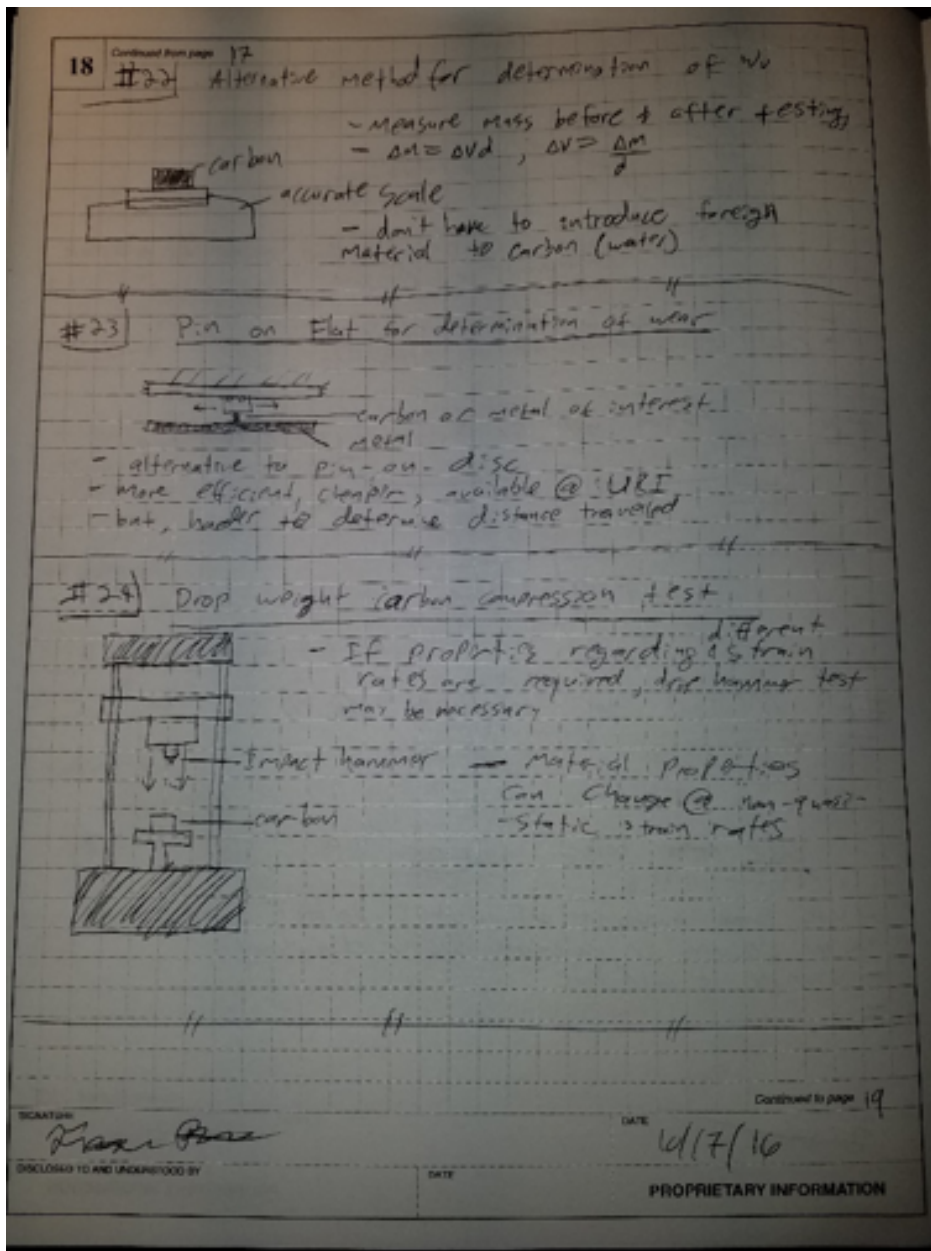 18 Continued from page 17
#22 Alternative method for determination of
- Measure mass before & after testing
- Δm = ΔVd , ΔV = Δm/d
carbon
accurate scale
- don't have to introduce foreign
material to carbon (water)
#23 Pin on Flat for determination of wear
carbon or metal of interest
metal
- alternative to pin-on-disc
- more efficient, cheaper, available @ URI
- but, harder to determine distance traveled
#24 Drop weight carbon compression test
different
- If properties regarding ^ strain
rates are required, drop hammer test
may be necessary
Impact hammer
- Material properties
can change @ non-quasi-
-static strain rates
carbon
Continued to page 19
SIGNATURE
DATE
/7/16
DISCLOSED TO AND UNDERSTOOD BY
DATE
PROPRIETARY INFORMATION